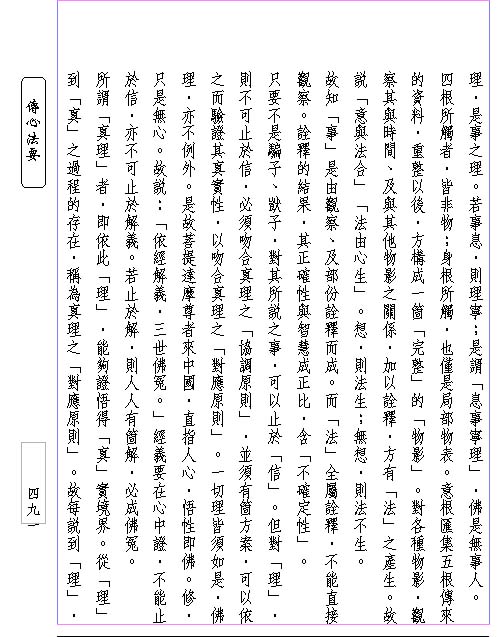 理，是事之理。若事息，則理寧；是謂「息事寧理」，佛是無事人。
四根所觸者，皆非物；身根所觸，也僅是局部物表。意根匯集五根傳來
的資料，重整以後，方構成一箇「完整」的「物影」。對各種物影，觀
察其與時間、及與其他物影之關係，加以詮釋，方有「法」之產生。故
說「意與法合」「法由心生」。想，則法生；無想，則法不生。
故知「事」是由觀察、及部份詮釋而成。而「法」全屬詮釋，不能直接
觀察。詮釋的結果，其正確性與智慧成正比，含「不確定性」。
只要不是騙子、獃子，對其所說之事，可以止於「信」。但對「理」，
則不可止於信，必須吻合真理之「協調原則」，並須有箇方案，可以依
之而驗證其真實性，以吻合真理之「對應原則」。一切理皆須如是，佛
理，亦不例外。是故菩提達摩尊者來中國，直指人心，悟性即佛。修，
只是無心。故說：「依經解義，三世佛冤。」經義要在心中證，不能止
於信，亦不可止於解義。若止於解，則人人有箇解，必成佛冤。
所謂「真理」者，即依此「理」，能夠證悟得「真」實境界。從「理」
到「真」之過程的存在，稱為真理之「對應原則」。故每說到「理」，
傳心法要
四九一